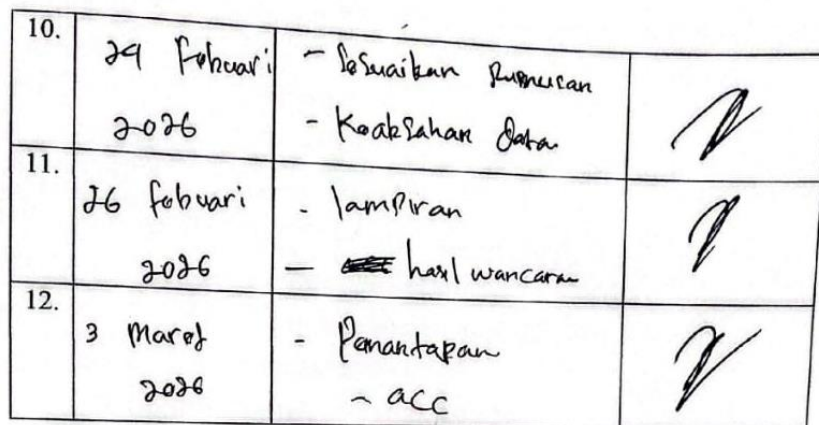 10.
24 Febuari
2026
- Sesuaikan Rumusan
- Keabsahan Data
11.
26 Febuari
2026
- lampiran
- hasil wancara
12.
3 Maret
2026
- Pemantapan
- acc